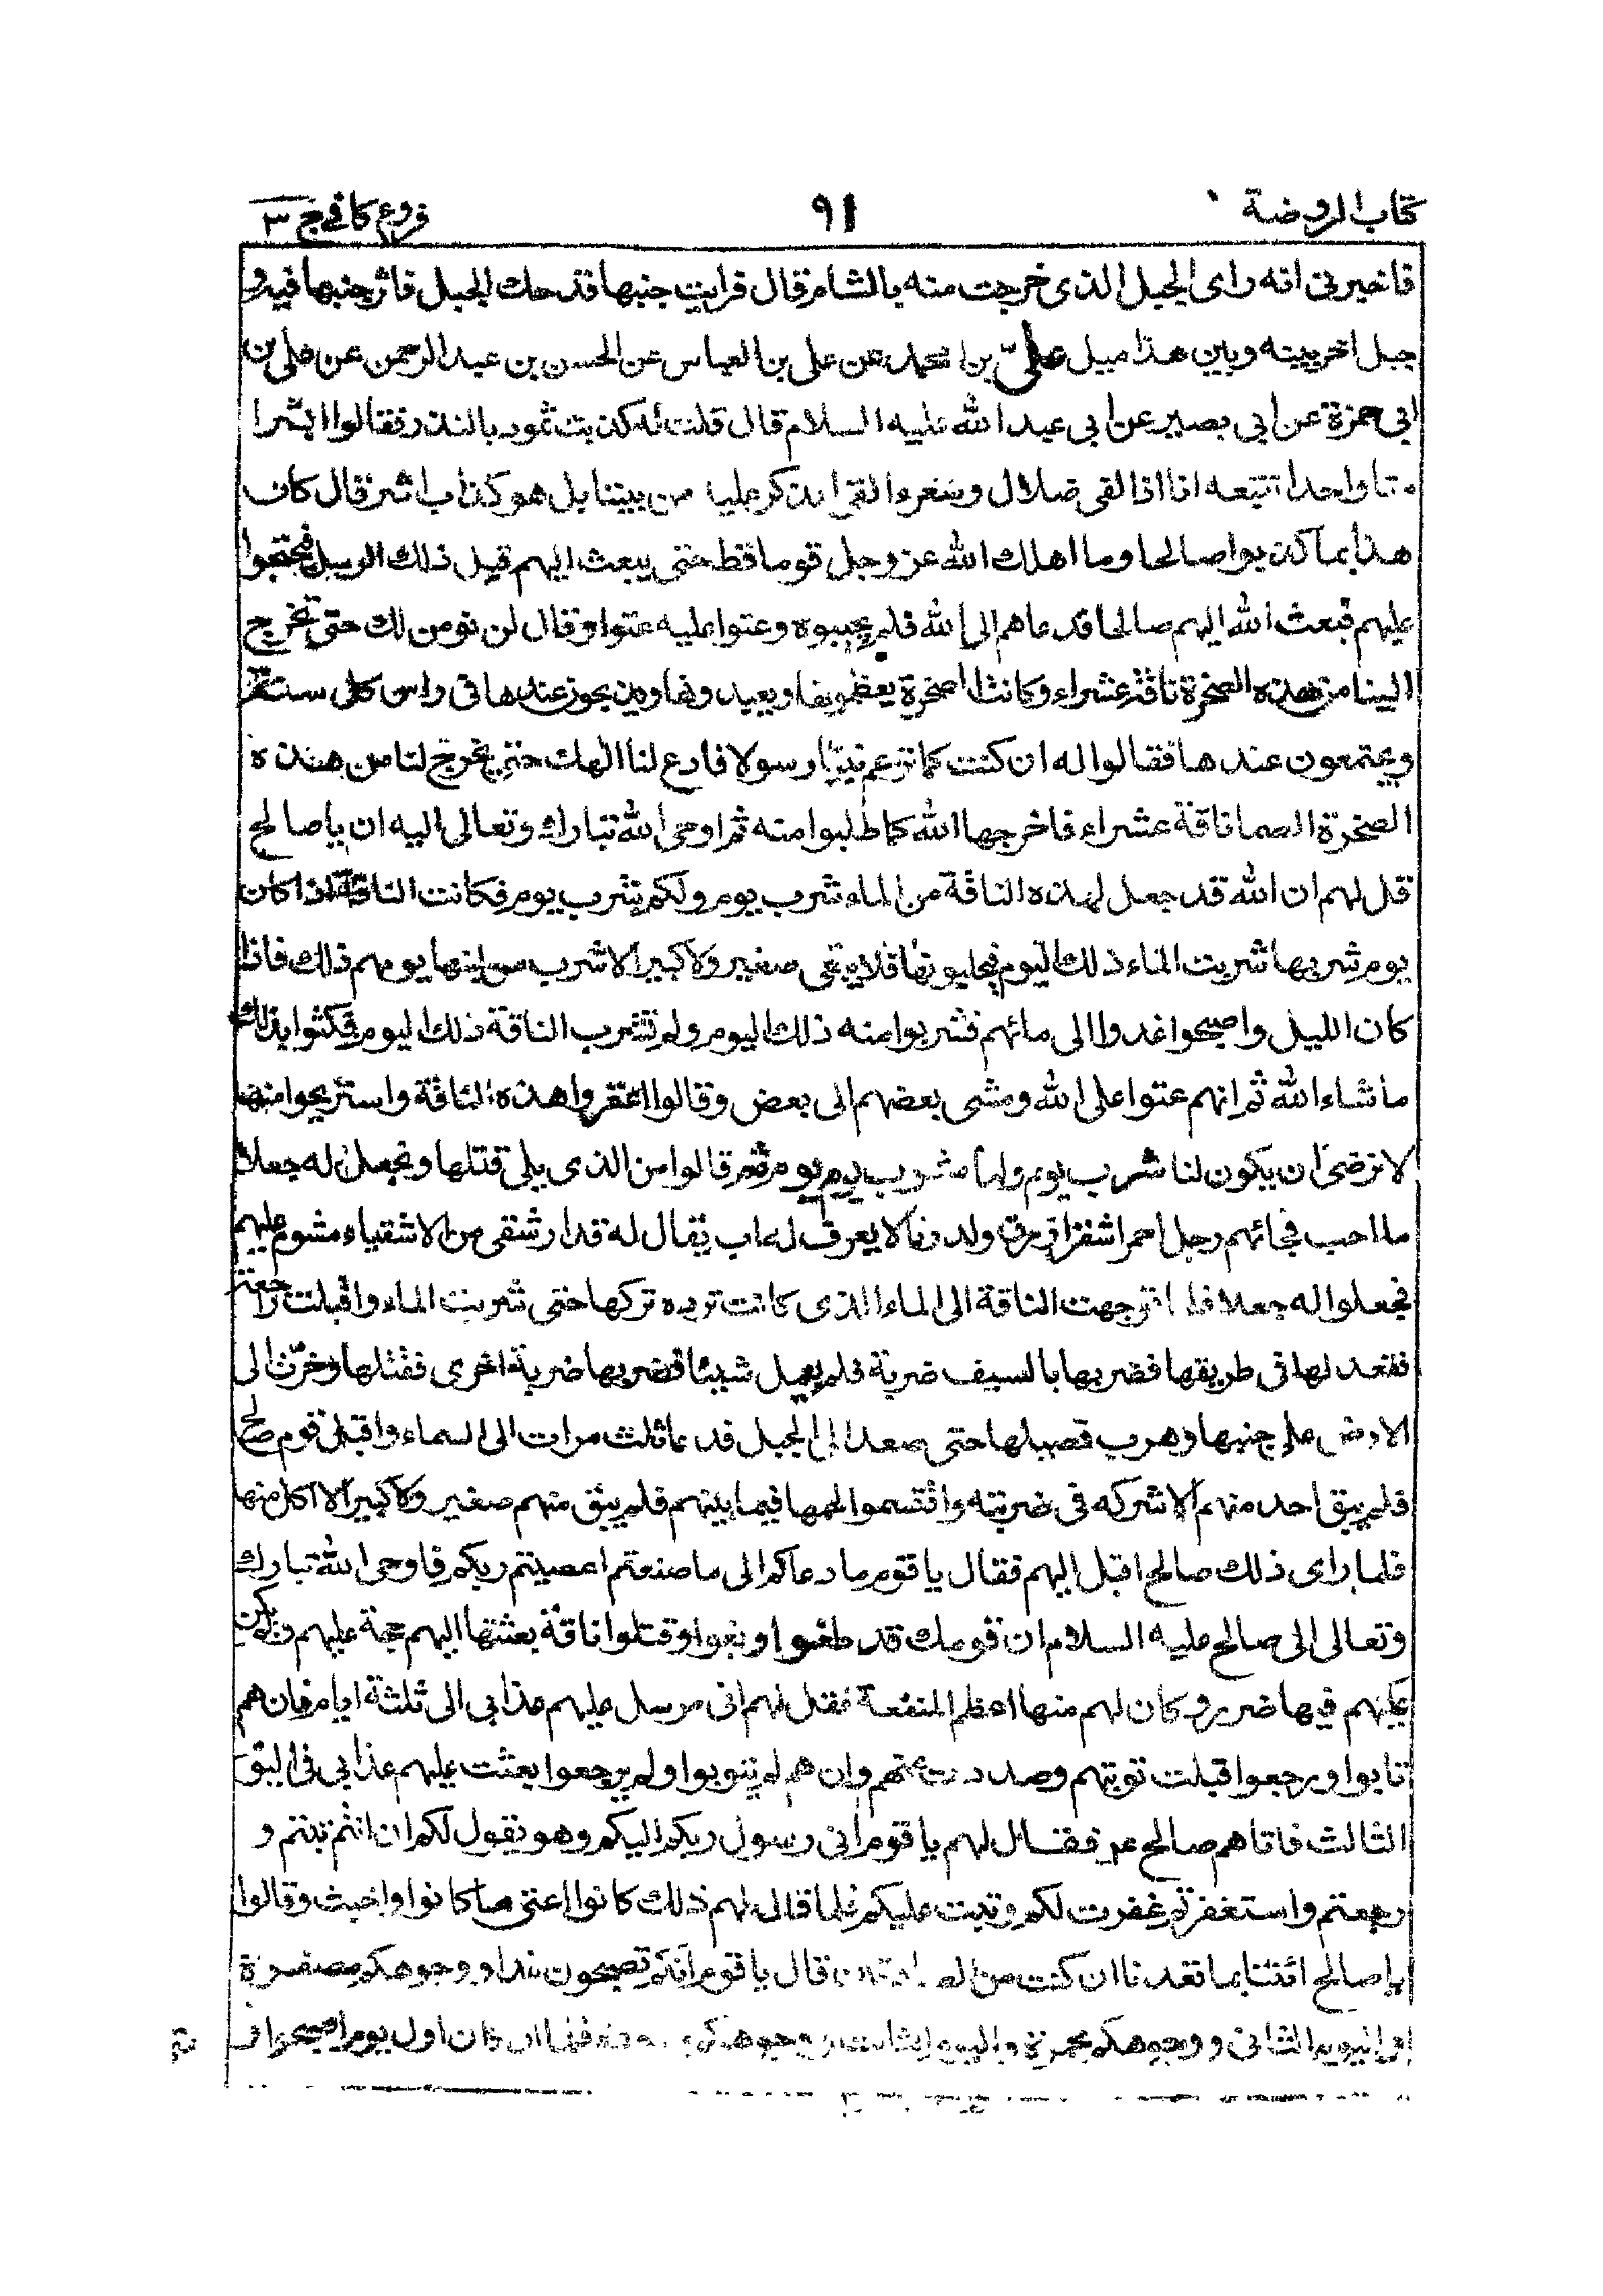 كتاب الروضة
٩١
فروع كافي ج ٣
فاخبرنى انه راى الجبل الذى خرجت منه بالشام قال فرايت جنبها قد حك الجبل فاثر جنبها فيه و
جبل اخر بينه وبين هذا ميل علىّ بن محمد عن على بن العباس عن الحسن بن عبد الرحمن عن على بن
ابى حمزة عن ابى بصير عن ابى عبد الله عليه السلام قال قلت له كذبت ثمود بالنذر فقالوا ابشرا
منا واحدا نتبعه انا اذا لفى ضلال وسعر ءالقى الذكر عليه من بيننا بل هو كذاب اشر قال كان
هذا بما كذبوا صالحا وما اهلك الله عز وجل قوما قط حتى يبعث اليهم قبل ذلك الرسل فيحتجوا
عليهم فبعث الله اليهم صالحا فدعاهم الى الله فلم يجيبوه وعتوا عليه عتوا وقال لن نومن لك حتى تخرج
الينا من هذه الصخرة ناقة عشراء وكانت الصخرة يعظمونها ويعبدونها ويذبحون عندها فى راس كل سنة
ويجتمعون عندها فقالوا له ان كنت كما تزعم نبيّا رسولا فادع لنا الهك حتى يخرج لنا من هذه
الصخرة الصما ناقة عشراء فاخرجها الله كما طلبوا منه ثم اوحى الله تبارك وتعالى اليه ان يا صالح
قل لهم ان الله قد جعل لهذه الناقة من الماء شرب يوم ولكم شرب يوم فكانت الناقة اذا كان
يوم شربها شربت الماء ذلك اليوم فيحلبونها فلا يبقى صغير ولا كبير الا شرب من لبنها يومهم ذلك فاذا
كان الليل واصبحوا غدوا الى مائهم فشربوا منه ذلك اليوم ولم تشرب الناقة ذلك اليوم فمكثوا بذلك
ما شاء الله ثم انهم عتوا على الله ومشى بعضهم الى بعض وقالوا اعقروا هذه الناقة واستريحوا منها
لا نرضى ان يكون لنا شرب يوم ولها شرب يوم ثم قالوا من الذى يلى قتلها ونجعل له جعلا
ما احب فجائهم رجل احمر اشقر ازرق ولد زنا لا يعرف له اب يقال له قدار شقى من الاشقياء مشوم عليهم
فجعلوا له جعلا فلما توجهت الناقة الى الماء الذى كانت ترده تركها حتى شربت الماء واقبلت راجعة
فقعد لها فى طريقها فضربها بالسيف ضربة فلم يعمل شيئا فضربها ضربة اخرى فقتلها وخرّت الى
الارض على جنبها وهرب فصيلها حتى صعد الى الجبل فدعا ثلث مرات الى السماء واقبل قوم صالح
فلم يبق احد منهم الا شركه فى ضربته واقتسموا لحمها فيما بينهم فلم يبق منهم صغير ولا كبير الا اكل منها
فلما راى ذلك صالح اقبل اليهم فقال يا قوم ما دعاكم الى ما صنعتم اعصيتم ربكم فاوحى الله تبارك
وتعالى الى صالح عليه السلام ان قومك قد طغوا وبغوا وقتلوا ناقة بعثتها اليهم حجة عليهم ولم يكن
عليهم فيها ضرر وكان لهم منها اعظم المنفعة فقل لهم انى مرسل عليهم عذابى الى ثلثة ايام فان هم
تابوا ورجعوا قبلت توبتهم وصددت عنهم وان هم لم يتوبوا ولم يرجعوا بعثت عليهم عذابى فى اليوم
الثالث فاتاهم صالح ع فقال لهم يا قوم انى رسول ربكم اليكم وهو يقول لكم ان انتم تبتم و
رجعتم واستغفرتم غفرت لكم وتبت عليكم فلما قال لهم ذلك كانوا اعتى ما كانوا واخبث وقالوا
يا صالح ائتنا بما تعدنا ان كنت من قال يا قوم انكم تصبحون غدا ووجوهكم مصفرة
واليوم الثانى ووجوهكم محمرة واليوم الثالث وجوهكم فلما ان كان اول يوم اصبحوا